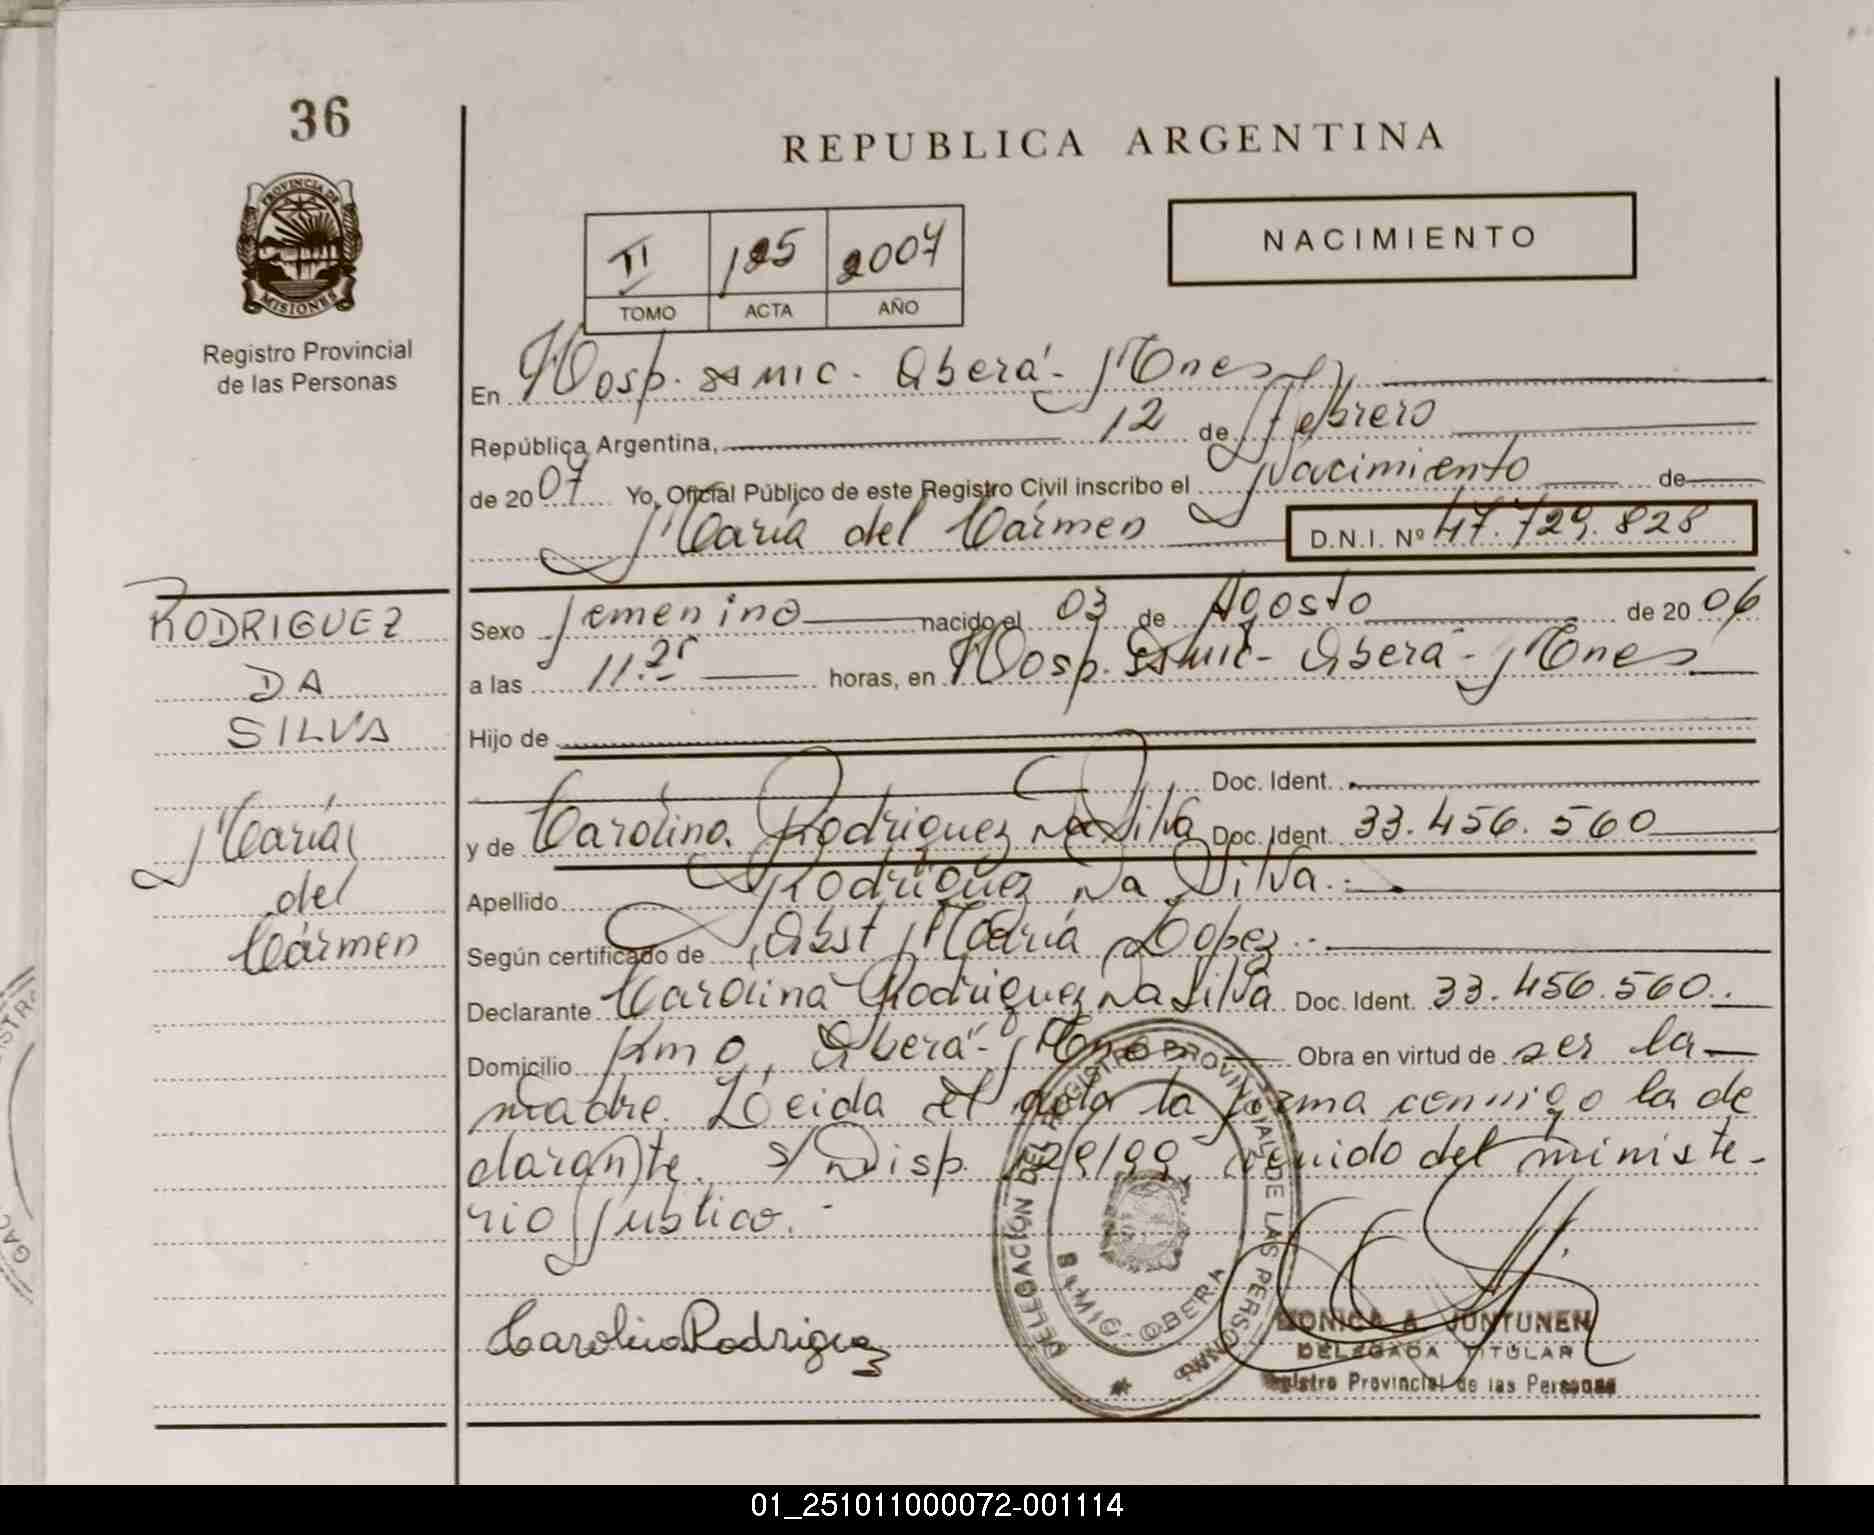 36
REPUBLICA ARGENTINA
PROVINCIA DE
MISIONES
Registro Provincial
de las Personas
NACIMIENTO
II 125 2007
TOMO ACTA AÑO
En Hosp. samic. Oberá- Mnes
República Argentina, 12 de Febrero
de 2007 Yo, Oficial Público de este Registro Civil inscribo el Nacimiento de
María del Cármen D.N.I. Nº 47.729.828
RODRIGUEZ
DA
SILVA
María
del
Cármen
Sexo femenino nacido el 03 de Agosto de 2006
a las 11.25 horas, en Hosp. samic- Oberá- Mnes
Hijo de
Doc. Ident.
y de Carolina Rodriguez Da Silva Doc. Ident. 33.456.560
Apellido Rodriguez Da Silva.
Según certificado de Obst María Lopez.
Declarante Carolina Rodriguez Da Silva Doc. Ident. 33.456.560.
Domicilio Km 0, Oberá- Mnes Obra en virtud de ser la
madre. Leida el acta la firma conmigo la de
clarante. s/ Disp. 29/99 del ministe-
rio publico.-
Carolina Rodriguez
DELEGACIÓN DEL REGISTRO PROVINCIAL DE LAS PERSONAS
SAMIC - OBERA
MONICA A. JUNTUNEN
DELEGADA TITULAR
Registro Provincial de las Personas
01_251011000072-001114